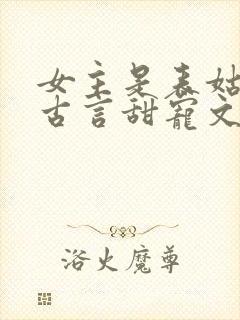 女主是表姑
古言甜宠文
浴火魔尊